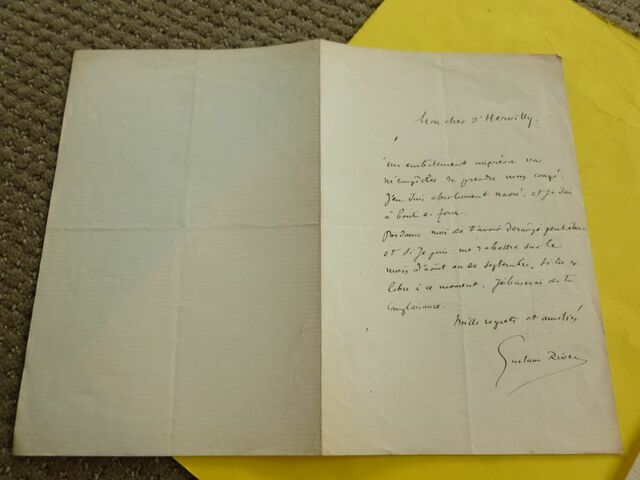 Mon cher d'Hervilly.
Un embêtement imprévu va
m'empêcher de prendre mon congé.
J'en suis absolument navré; et je suis
à bout de
Pardonne moi de t'avoir dérangé peut être
et si je puis me rabattre sur le
mois d'août ou de septembre. Si tu es
libre à ce moment. J'abuserai de ta
complaisance.
Mille regrets et amitiés
Gustave Rivet